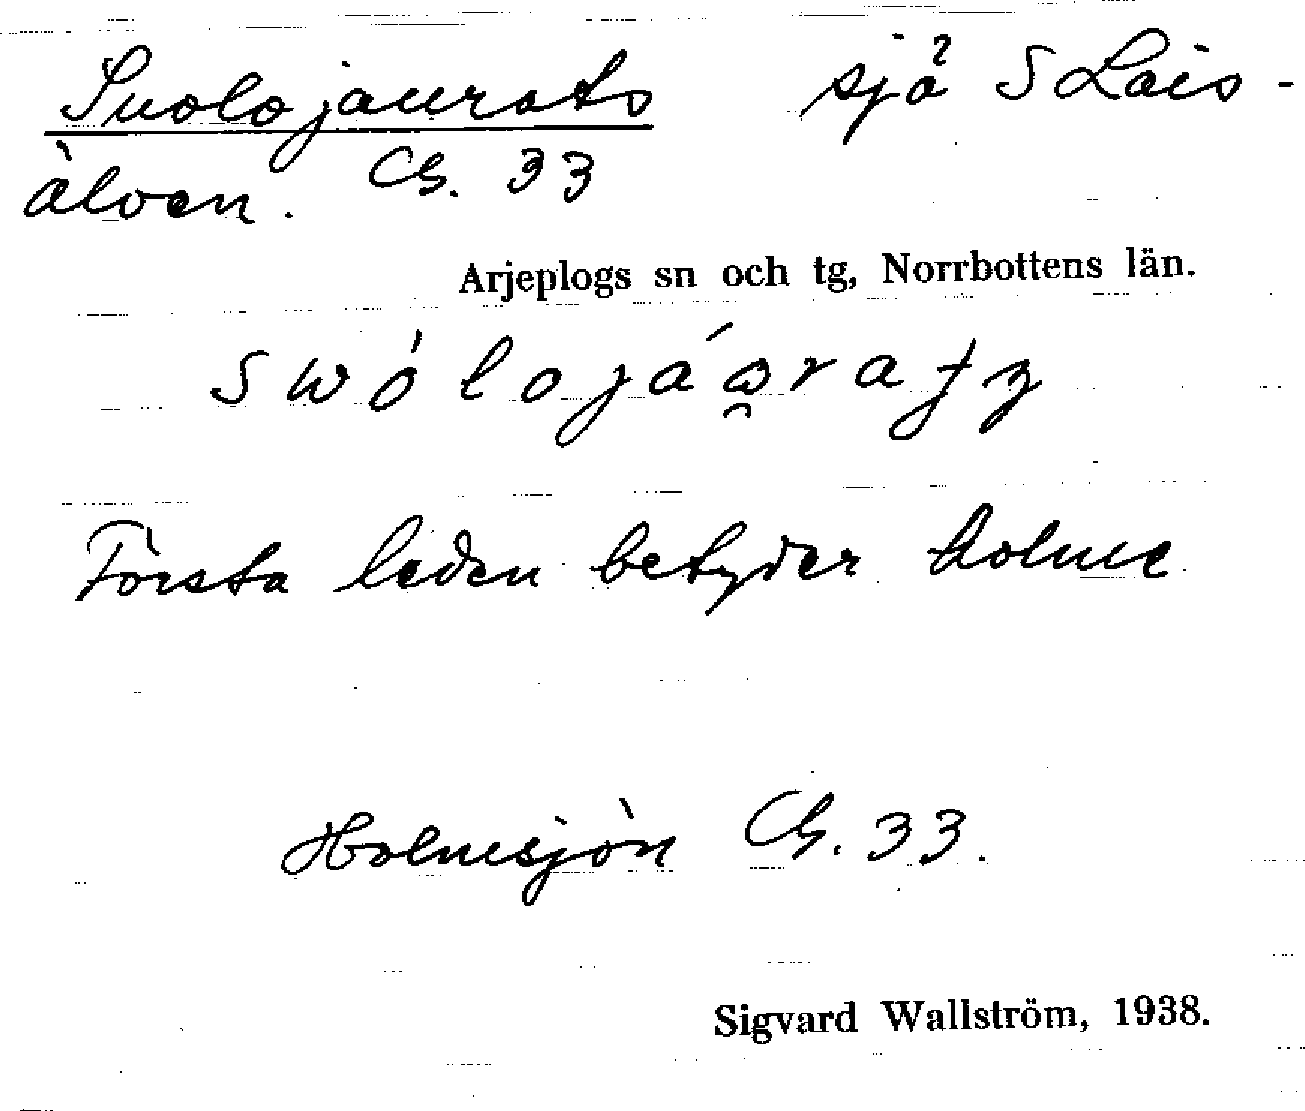 Suolojaurats sjö S Lais-
älven. CG. 33
Arjeplogs sn och tg, Norrbottens län.
Första leden betyder holme
Holmesjön CG. 33.
Sigvard Wallström, 1938.